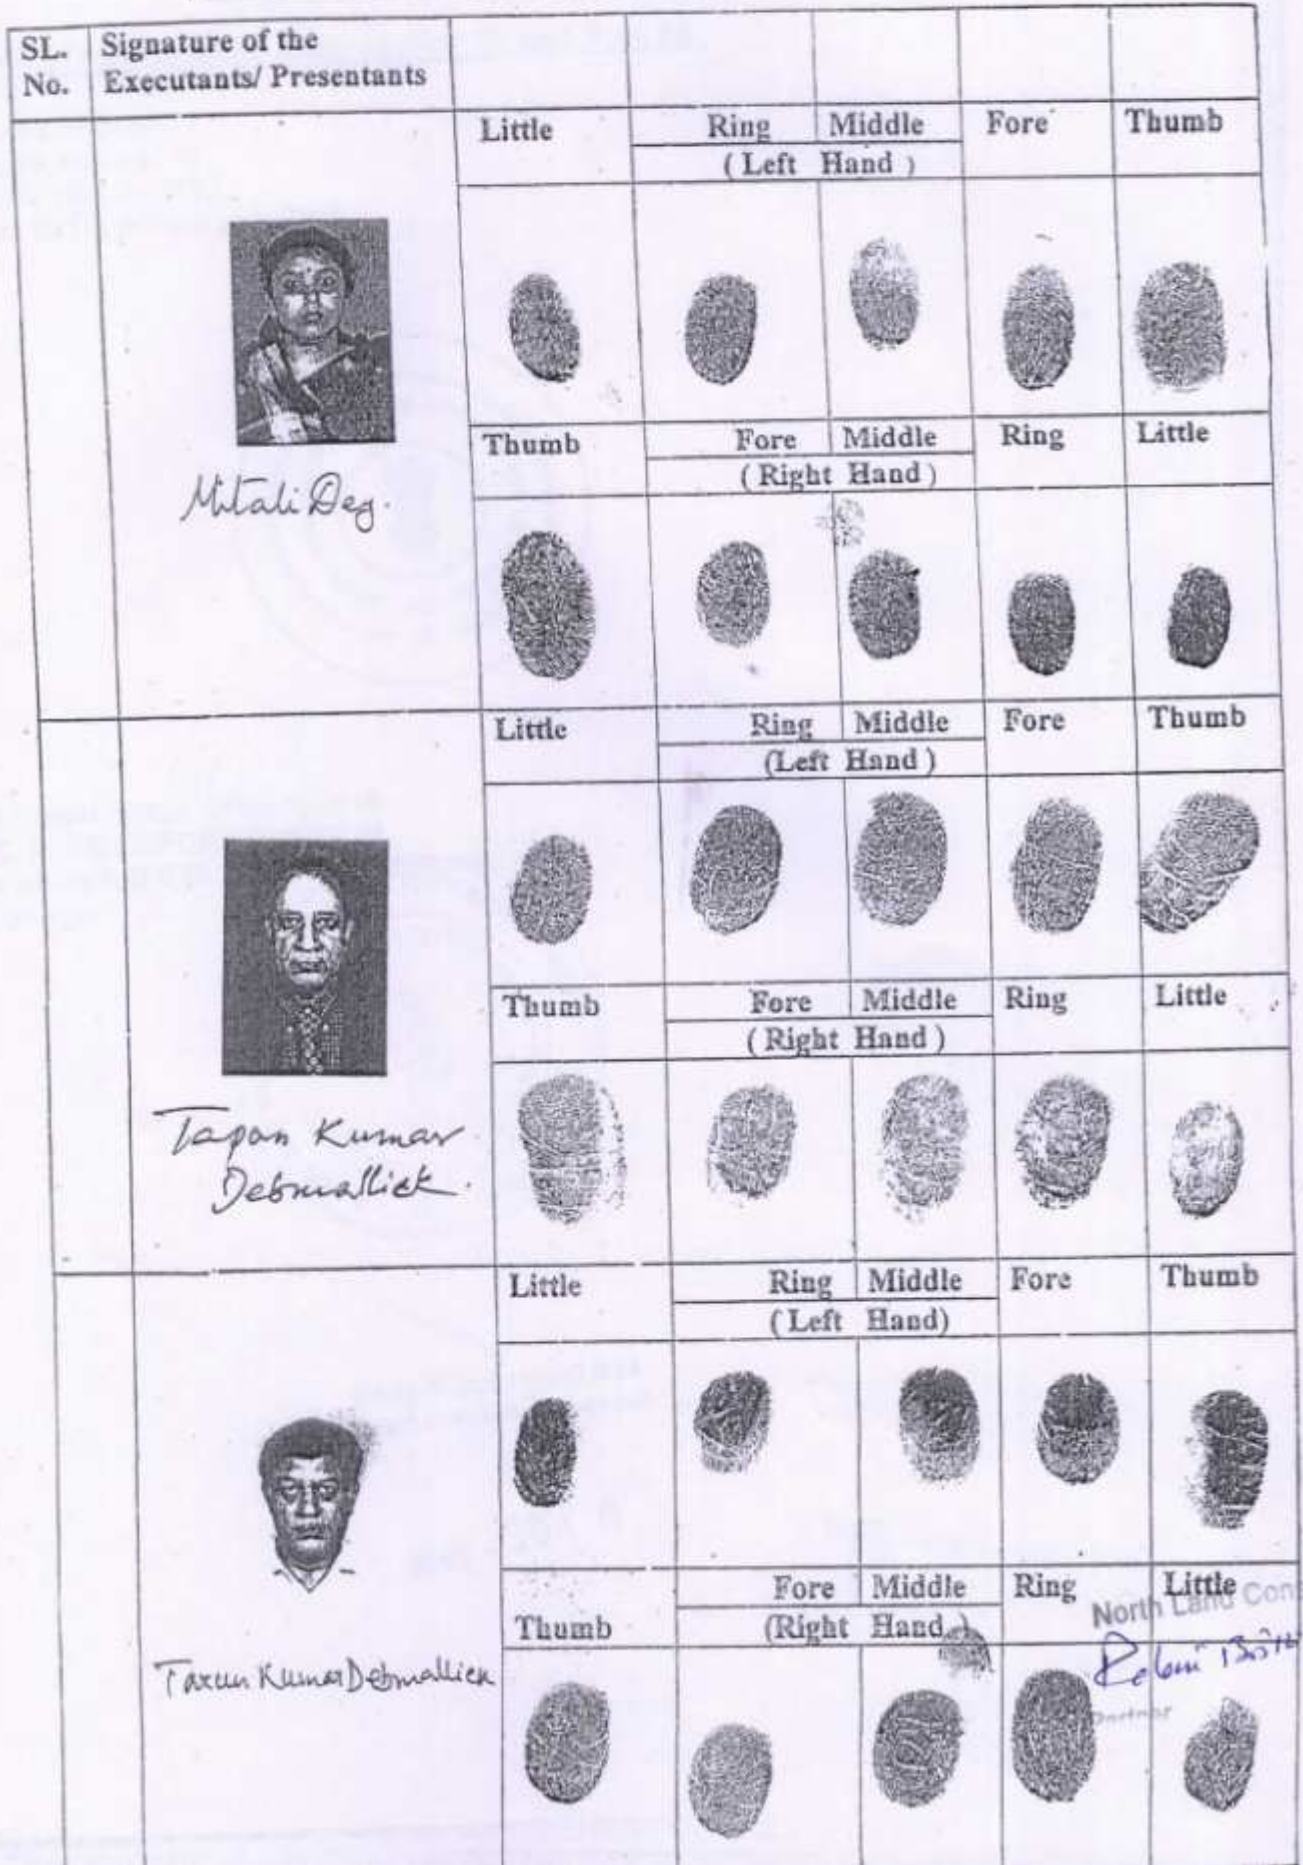 SL. No.
Signature of the Executants/ Presentants
Little Ring Middle Fore Thumb
( Left Hand )
Thumb Fore Middle Ring Little
( Right Hand )
Mitali Dey.
Little Ring Middle Fore Thumb
(Left Hand )
Thumb Fore Middle Ring Little
( Right Hand )
Tapan Kumar
Debmallick.
Little Ring Middle Fore Thumb
( Left Hand)
Fore Middle Ring Little
Thumb (Right Hand )
North Land Cons
Partner
Tarun Kumar Debmallick